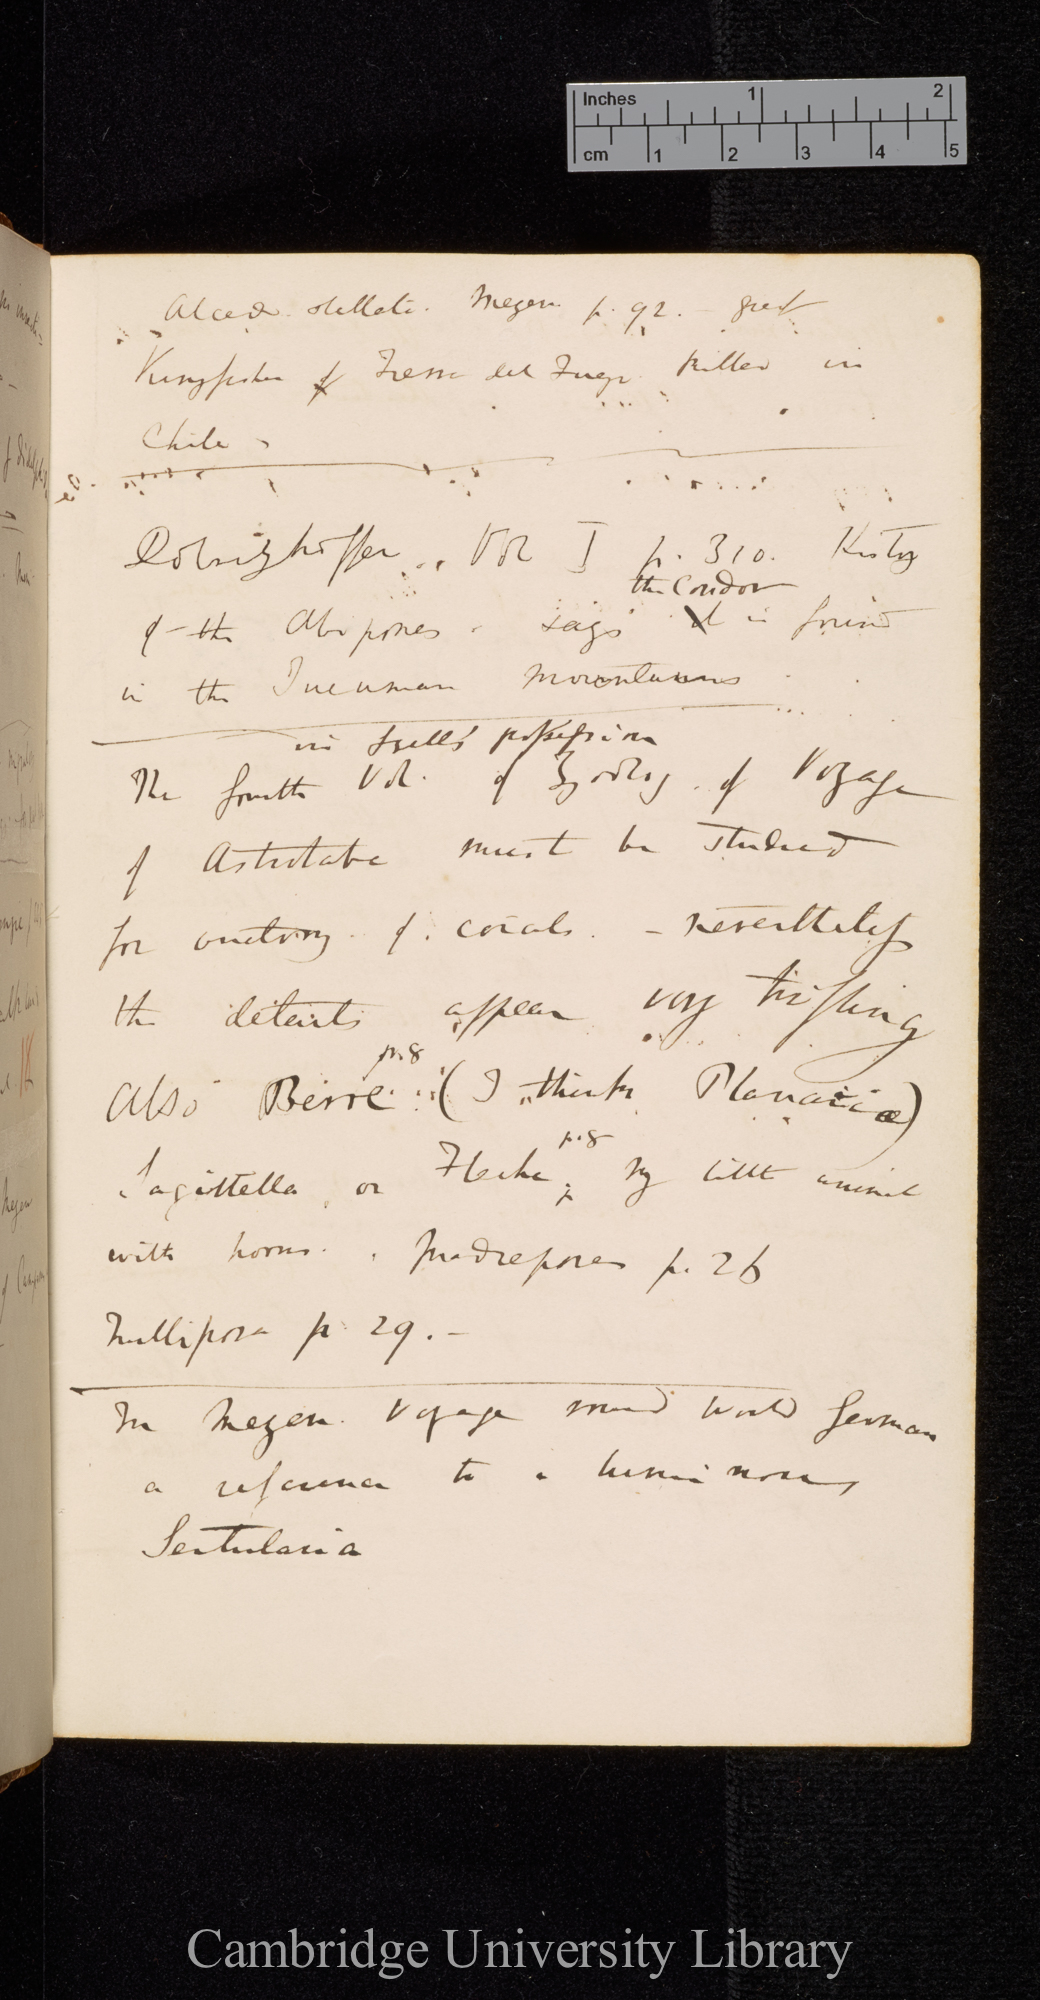 Inches 1 2
cm 1 2 3 4 5
Alcedo stellata. Meyen p. 92. – great
Kingfisher of Tierra del Fuego killed in
Chile
Dobrizhoffer. Vol I p. 310. History
the Condor
of the Abipones. says it is found
in the Tucuman mountains
in Lyell's possession
The fourth Vol. of Zoology of Voyage
of Astrolabe must be studied
for anatomy of corals. – nevertheless
the details appear very trifling
p. 8
Also Beroe (I think Planariae)
p. 8
Sagittella, or Flecha; my little animal
with horns. Madrepores p. 26
Nullipora p 29. –
In Meyen Voyage round World German
a reference to a luminous
Sertularia
18
Cambridge University Library